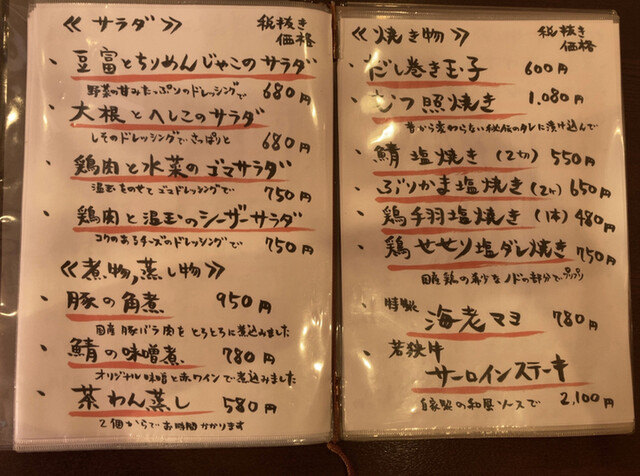 ≪ サラダ ≫ 税抜き
価格
・豆富とちりめんじゃこのサラダ
野菜の甘みたっぷりのドレッシングで 680円
・大根とへしこのサラダ
しそのドレッシングでさっぱりと 680円
・鶏肉と水菜のゴマサラダ
温玉をのせてゴマドレッシングで 750円
・鶏肉と温玉のシーザーサラダ
コクのあるチーズのドレッシングで 750円
≪煮物,蒸し物≫
・豚の角煮 950円
国産豚バラ肉をとろとろに煮込みました
・鯖の味噌煮. 780円
オリジナル味噌と赤ワインで煮込みました
・茶わん蒸し 580円
2個からでお時間かかります
≪焼き物≫ 税抜き
価格
・だし巻き玉子 600円
・むつ照焼き 1,080円
昔から変わらない秘伝のタレに漬け込んで
・鯖塩焼き (2切) 550円
・ぶりかま塩焼き (2ケ) 650円
・鶏手羽塩焼き (1本) 480円
・鶏せせり塩ダレ焼き 750円
国産鶏の希少なノドの部分でプリプリ
・特製 海老マヨ 780円
・若狭牛
サーロインステーキ
自家製の和風ソースで 2,100円